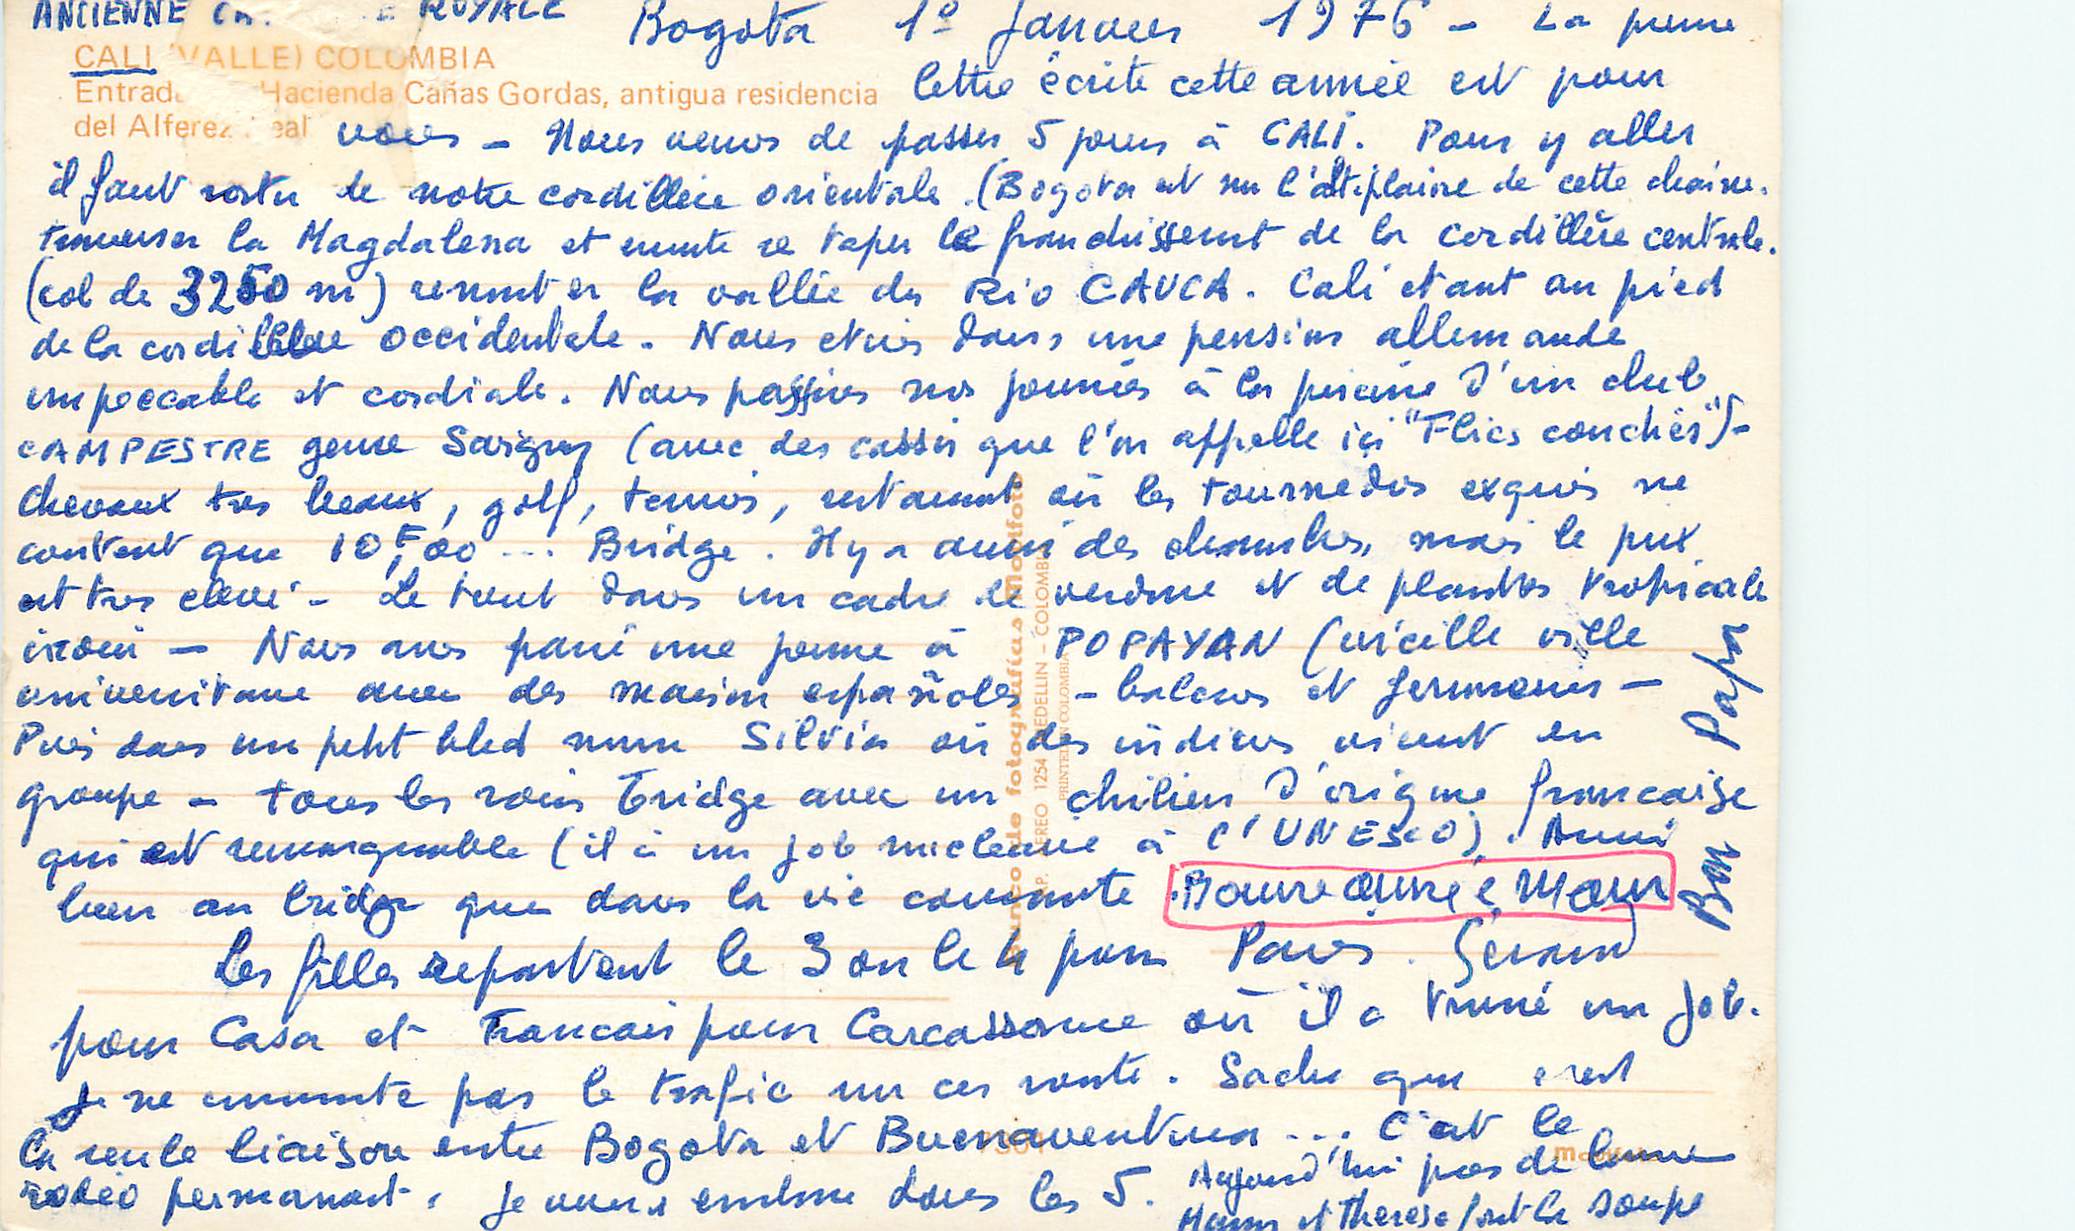 ANCIENNE ROYALE Bogota 1º Janvier 1976 - La premre
CALI (VALLE) COLOMBIA
lettre écrite cette année est pour
Entrada Hacienda Cañas Gordas, antigua residencia
del Alferez Real
vous - Nous venons de passer 5 jours à CALI. Pour y aller
il faut sortir de notre cordillère orientale (Bogota est sur l'altiplaine de cette chaine.
traverser la Magdalena et ensuite se taper le franchissement de la cordillère centrale.
(col de 3250 m) remonter la vallée du Rio CAUCA. Cali etant au pied
de la cordillere occidentale. Nous etions dans une pension allemande
impeccable et cordiale. Nous passions nos journées à la piscine d'un club
CAMPESTRE genre Savigny (avec des cassis que l'on appelle ici "Flics couchés")-
chevaux tres beaux, golf, tennis, restaurant où les tournedos exquis ne
content que 10,F00 ... Bridge. Il y a aussi des chambres, mais le prix
est tres elevé - Le tout dans un cadre de verdure et de plantes tropicale
inoui - Nous avons passé une journee à POPAYAN (vieille ville
universitaire avec des maisons españoles - balcons et
Puis dans un petit bled nomme Silvia où des indiens vivent en
groupe - tous les soirs Bridge avec un chilien d'origine francaise
qui est remarquable (il a un job nucleaire à l'UNESCO). Aussi
bien au bridge que dans la vie courante Bonne année Mam
Bon Papa
Les filles repartent le 3 ou le 4 pour Paris. Gerard
pour Casa et Francais pour Carcassonne où il a trouvé un job.
Je ne pas le trafic sur ces route. Sache que c'est
la seule liaison entre Bogota et Buenaventura ... C'est le
rodéo permanant. Je vous embrasse dans les 5. Aujourd'hui pas de bonne
Mamn et Therese font la soupe
Banco de fotografias Movifoto
AP. AEREO 1254 MEDELLIN - COLOMBIA
PRINTED IN COLOMBIA